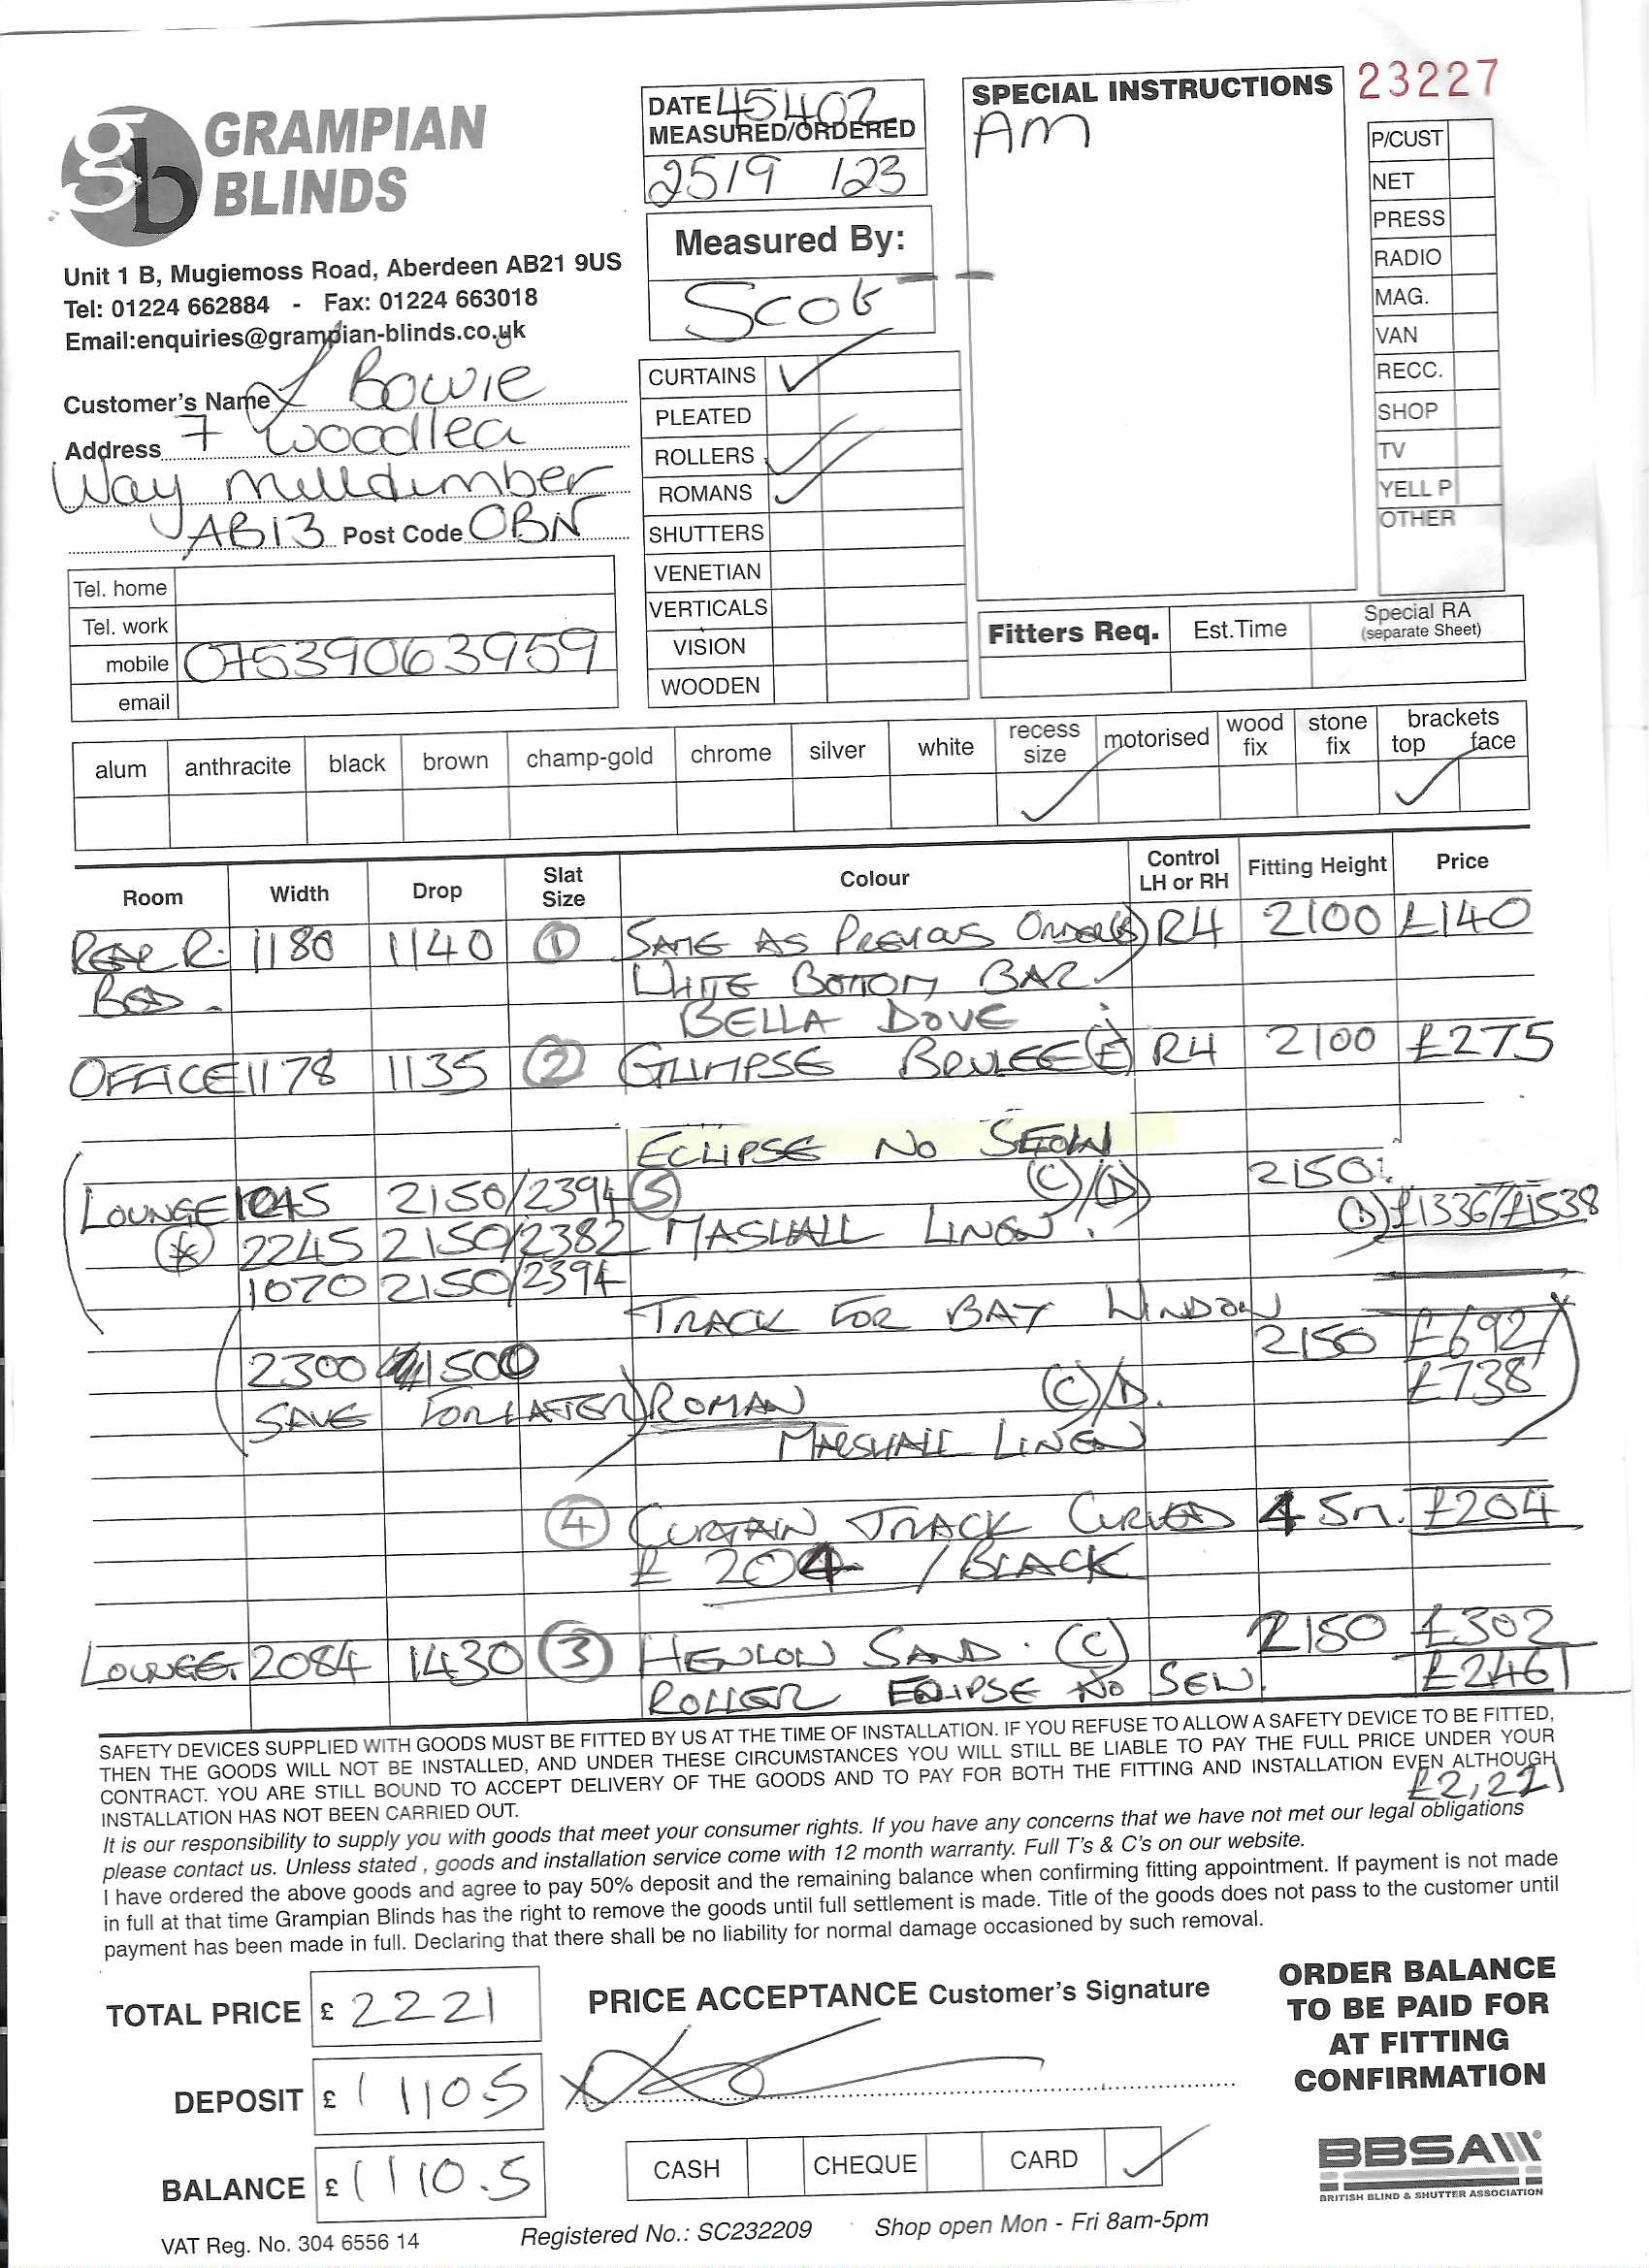 GRAMPIAN
BLINDS
Unit 1 B, Mugiemoss Road, Aberdeen AB21 9US
Tel: 01224 662884 - Fax: 01224 663018
Email:enquiries@grampian-blinds.co.uk
Customer's Name L Bowie
Address 7 Woodlea
Way Milltimber
AB13 Post Code OBN
Tel. home
Tel. work
mobile 07539063959
email
DATE 45402
MEASURED/ORDERED
25/9/23
Measured By:
Scot
CURTAINS ✓
PLEATED
ROLLERS ✓✓
ROMANS ✓
SHUTTERS
VENETIAN
VERTICALS
VISION
WOODEN
SPECIAL INSTRUCTIONS
AM
23227
P/CUST
NET
PRESS
RADIO
MAG.
VAN
RECC.
SHOP
TV
YELL P
OTHER
Fitters Req. Est.Time Special RA
(separate Sheet)
alum anthracite black brown champ-gold chrome silver white recess size ✓ motorised wood fix stone fix brackets top ✓ face
Room Width Drop Slat Size Colour Control LH or RH Fitting Height Price
Rear R. 1180 1140 ① SAME AS PREVIOUS ORDER(S) RH 2100 £140
BED. WHITE BOTTOM BAR
BELLA DOVE
OFFICE 1178 1135 ② GLIMPSE BRULEE (E) RH 2100 £275
ECLIPSE NO SEOW
LOUNGE 1045 2150/2394 ⑤ (C)/(D) 2150
* 2245 2150/2382 MASHALL LINEN. (D) £1336/£1538
1070 2150/2394
TRACK FOR BAY WINDOW
2300 1500 2150 £692
SAVE FOR LATER) ROMAN (C)/D. £738
MARSHALL LINEN
④ CURTAIN TRACK CURVED 4 5m. £204
£ 204 / BLACK
LOUNGE. 2084 1430 ③ HENLOW SAND. (C) 2150 £302
ROLLER ECLIPSE NO SEW. £2461
SAFETY DEVICES SUPPLIED WITH GOODS MUST BE FITTED BY US AT THE TIME OF INSTALLATION. IF YOU REFUSE TO ALLOW A SAFETY DEVICE TO BE FITTED,
THEN THE GOODS WILL NOT BE INSTALLED, AND UNDER THESE CIRCUMSTANCES YOU WILL STILL BE LIABLE TO PAY THE FULL PRICE UNDER YOUR
CONTRACT. YOU ARE STILL BOUND TO ACCEPT DELIVERY OF THE GOODS AND TO PAY FOR BOTH THE FITTING AND INSTALLATION EVEN ALTHOUGH
INSTALLATION HAS NOT BEEN CARRIED OUT. £2,221
It is our responsibility to supply you with goods that meet your consumer rights. If you have any concerns that we have not met our legal obligations
please contact us. Unless stated , goods and installation service come with 12 month warranty. Full T's & C's on our website.
I have ordered the above goods and agree to pay 50% deposit and the remaining balance when confirming fitting appointment. If payment is not made
in full at that time Grampian Blinds has the right to remove the goods until full settlement is made. Title of the goods does not pass to the customer until
payment has been made in full. Declaring that there shall be no liability for normal damage occasioned by such removal.
TOTAL PRICE £ 2221
DEPOSIT £ 1110.5
BALANCE £ 1110.5
PRICE ACCEPTANCE Customer's Signature
CASH CHEQUE CARD ✓
ORDER BALANCE
TO BE PAID FOR
AT FITTING
CONFIRMATION
BBSA
BRITISH BLIND & SHUTTER ASSOCIATION
VAT Reg. No. 304 6556 14 Registered No.: SC232209 Shop open Mon - Fri 8am-5pm